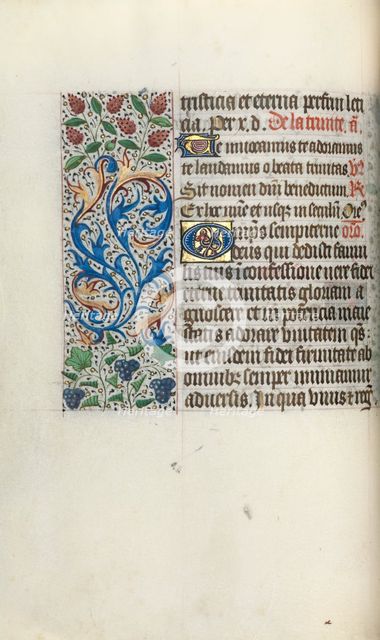 tristicia et eterna perfrui leti
cia. Per x.d. De la trinite. a.
Te inuocamus te adoramus
te laudamus o beata trinitas. V.
Sit nomen dñi benedictum. R.
Ex hoc nũc et usq; in seculũ. Ore.
Omps sempiterne oro.
deus qui dedisti famu
lis tuis i confessione uere fidei
eterne trinitatis gloriam a
gnoscere et in potencia maie
statis adorare unitatem qs.
ut eiusdem fidei firmitate ab
omnibz semper muniamur
aduersis. In qua viuis et reg.
heritage
heritage
heritage